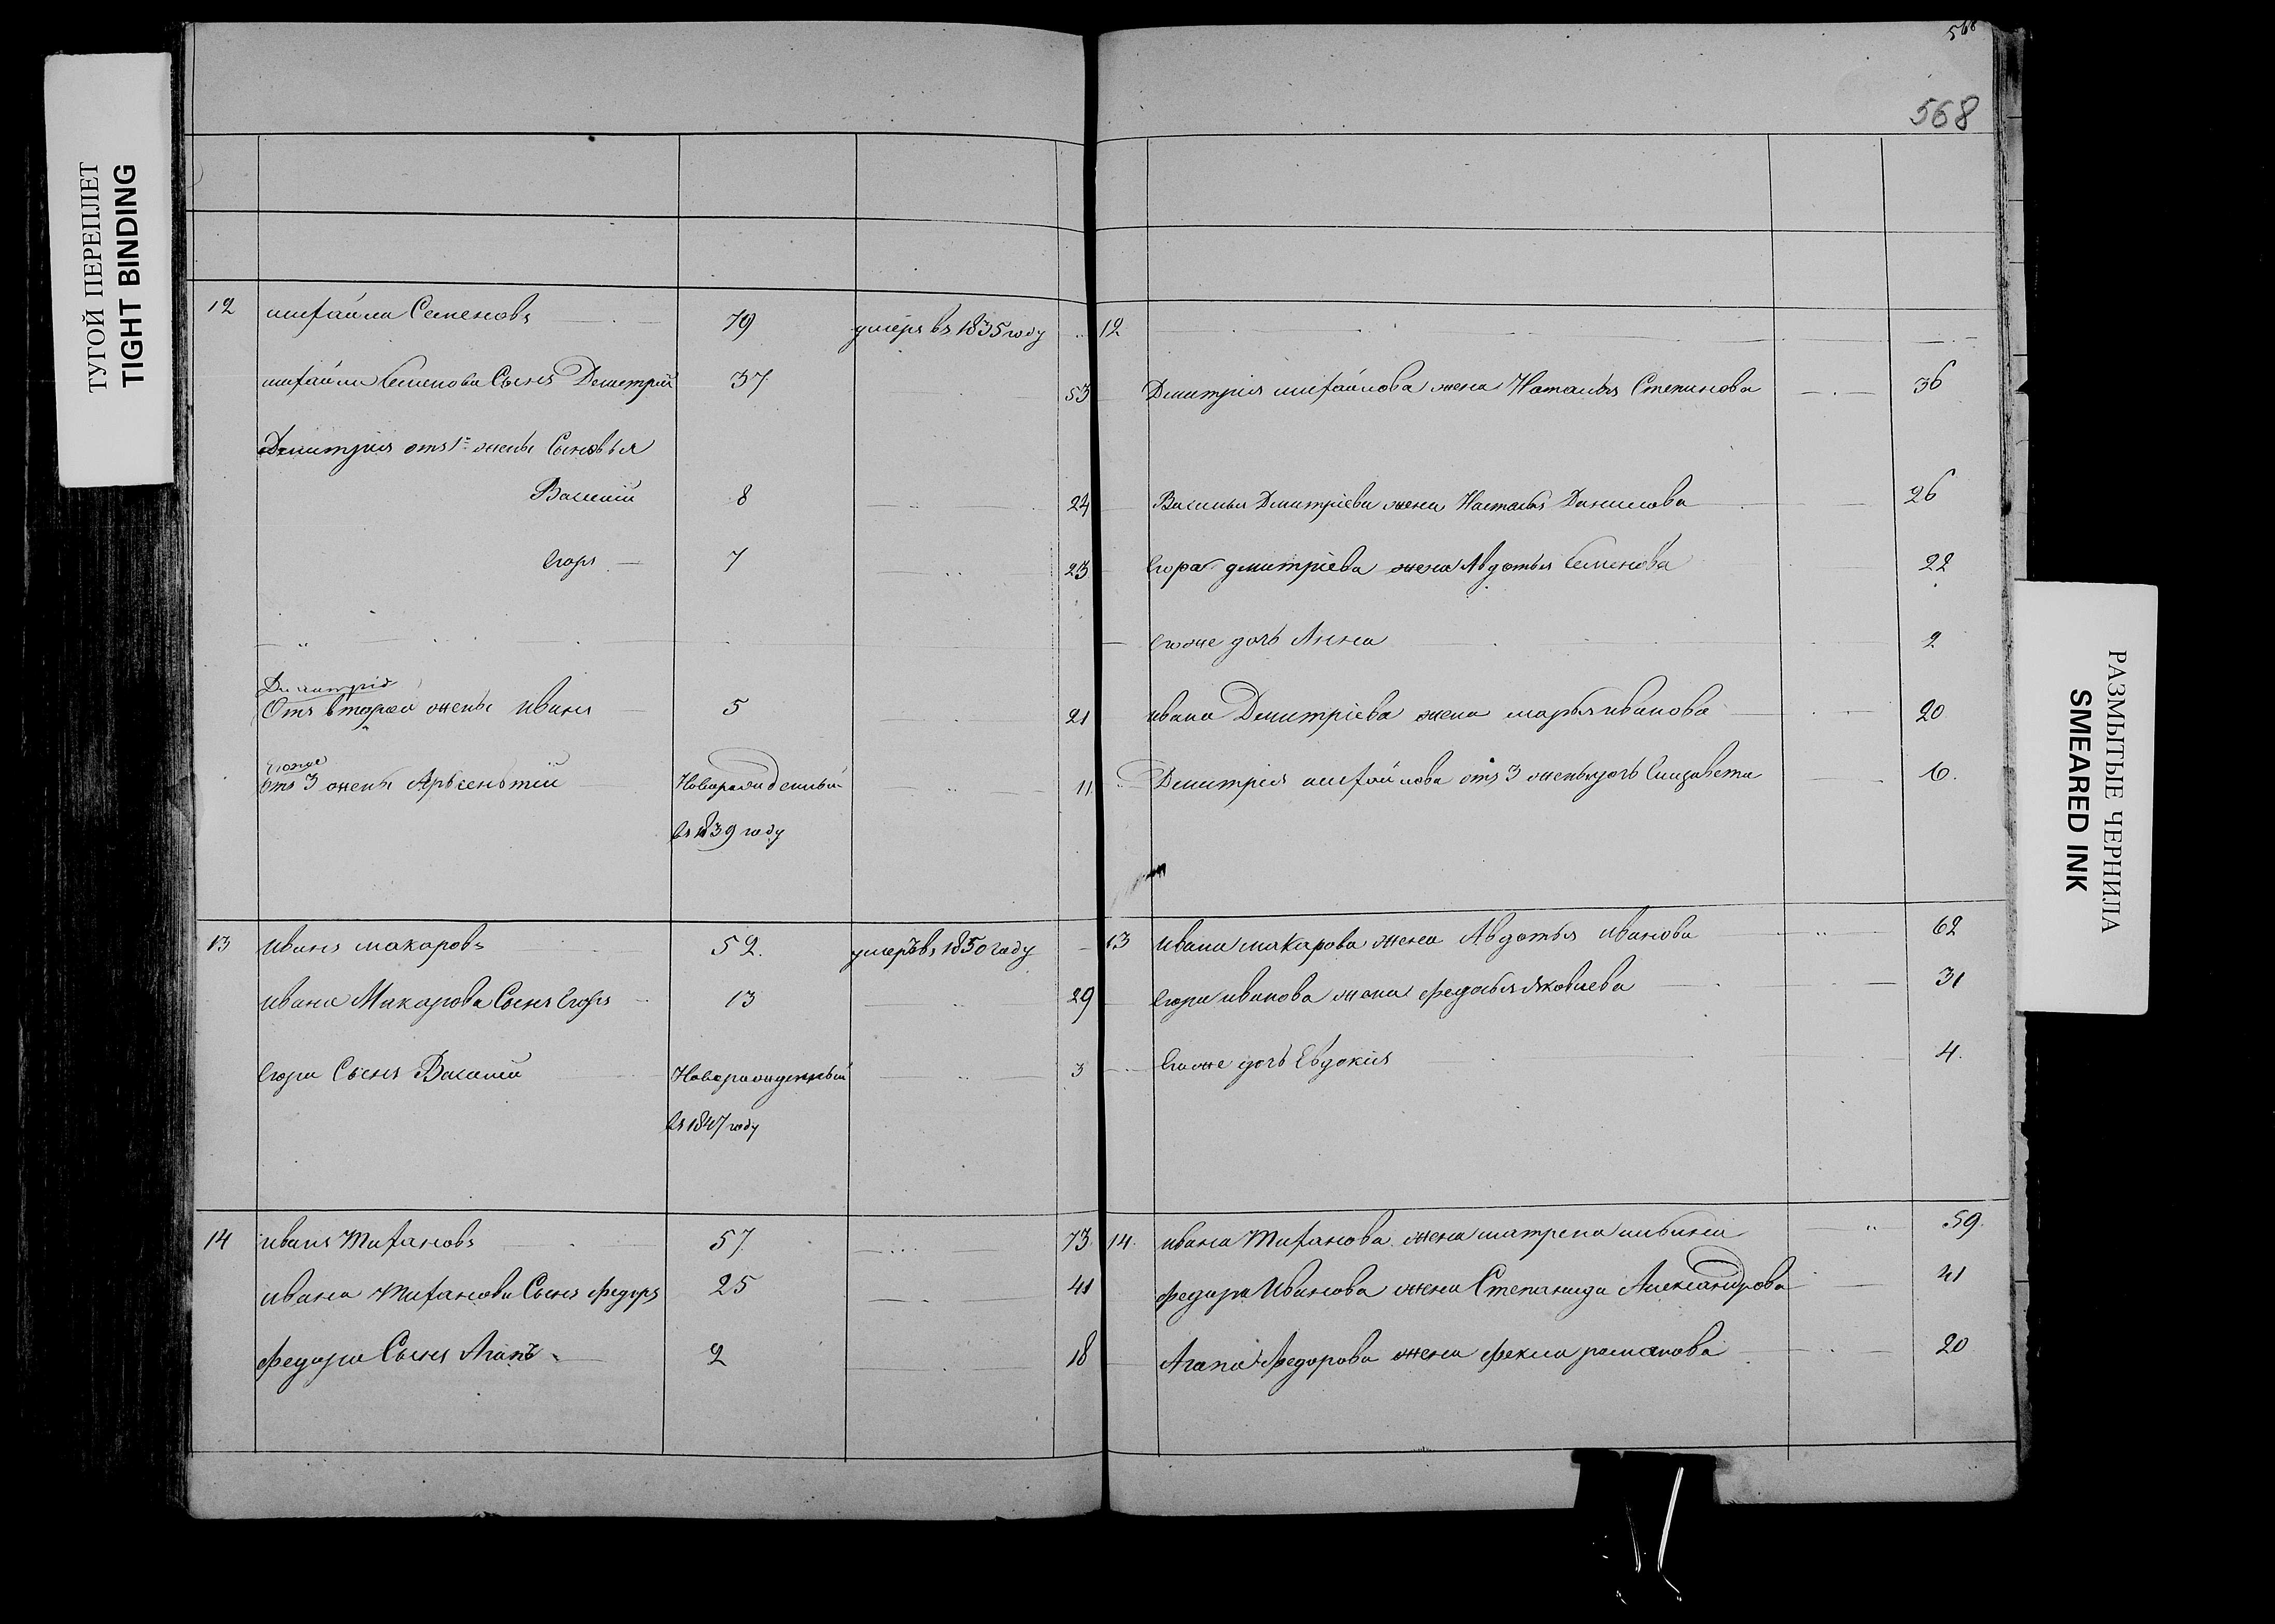 568
568
ТУГОЙ ПЕРЕПЛЕТ
TIGHT BINDING
12 михайла Семеновъ 79 умеръ въ 1835 году
михайлы Семенова Сынъ Деметрий 37 53
Дмитрия отъ 1й жены Сыновья
Василий 8 24
Егоръ 7 23
Дмитрия
Отъ второй жены иванъ 5 21
Егоже
отъ 3 жены Арьсеньтий Новорожденный 11
въ 1839 году
13 иванъ макаровъ 52. умеръ въ 1850 году
ивана Макарова Сынъ Егоръ 13 29
Егора Сынъ Василий Новорожденный 3
въ 1847 году
14 иванъ Тифановъ 57 73
ивана Тифанова Сынъ федоръ 25 41
федора Сынъ Агапъ 2 18
12
Дмитрия михайлова жена Наталья Степанова 36
Василья Дмитріева жена Настасья Данилова 26
Егора дмитріева жена Авдотья Семенова 22
Егоже дочь Анна 2
ивана Дмитріева жена марья иванова 20
Дмитрия михайлова отъ 3 жены дочь Елизавета 6.
13 ивана макарова жена Авдотья иванова 62
Егора иванова жена федосья яковлева 31
Егоже дочь Евдокия 4.
14. ивана Тифанова жена матрена 59.
федора Иванова жена Степанида Александрова 41
Агапа Федорова жена фекла романова 20
РАЗМЫТЫЕ ЧЕРНИЛА
SMEARED INK